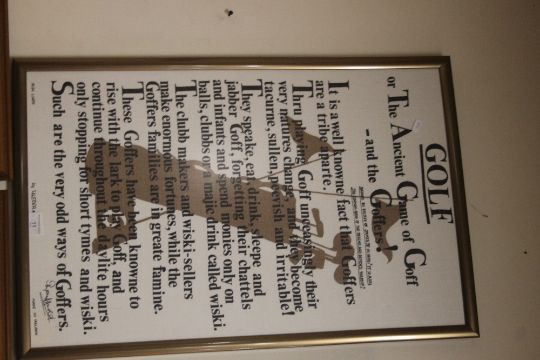 GOLF
or The Ancient Game of Goff
– and the Goffers!
It is a well knowne fact that Goffers
are a tribe aparte.
Thru playing Goff unceasingly their
very natures change, and they become
tacurne, sullen, peevish and irritable!
They speake, eat, drink, sleepe and
jabber Goff, forgetting their chattels
and infants and spend monies only on
balls, clubbs or a major drink called wiski.
The clubb makers and wiski-sellers
make enormous fortunes, while the
Goffers families are in greate famine.
These Goffers have been knowne to
rise with the lark to play Goff, and
continue throughout the daylite hours
only stopping for short tymes and wiski.
Such are the very odd ways of Goffers.